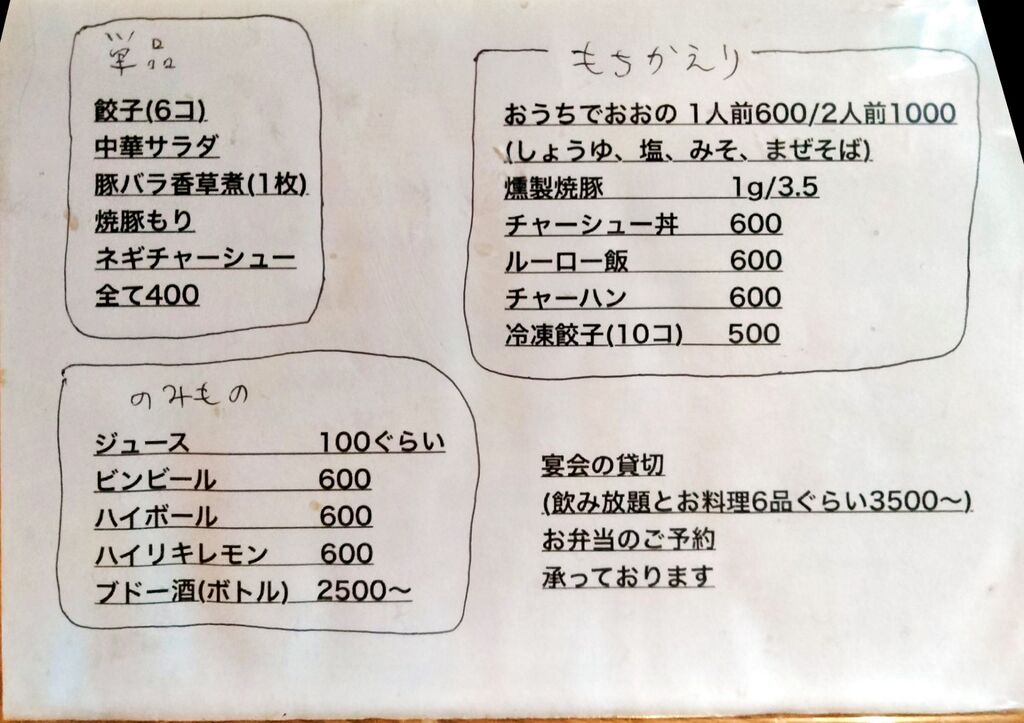 単品
餃子(6コ)
中華サラダ
豚バラ香草煮(1枚)
焼豚もり
ネギチャーシュー
全て400
もちかえり
おうちでおおの 1人前600/2人前1000
(しょうゆ、塩、みそ、まぜそば)
燻製焼豚 1g/3.5
チャーシュー丼 600
ルーロー飯 600
チャーハン 600
冷凍餃子(10コ) 500
のみもの
ジュース 100ぐらい
ビンビール 600
ハイボール 600
ハイリキレモン 600
ブドー酒(ボトル) 2500〜
宴会の貸切
(飲み放題とお料理6品ぐらい3500〜)
お弁当のご予約
承っております